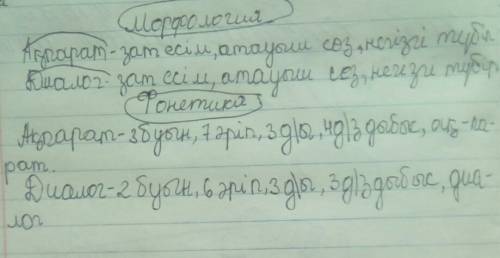 Морфология
Ақпарат-зат есім, атауыш сөз, негізгі түбір
Диалог-зат есім, атауыш сөз, негизги түбір.
Фонетика
Ақпарат-3 буын, 7 әріп, 3 д/ы, 4д/з дыбыс, ақ-па-
рат.
Диалог-2 буын, 6 әріп, 3 д/ы, 3д/з дыбыс, диа-
лог